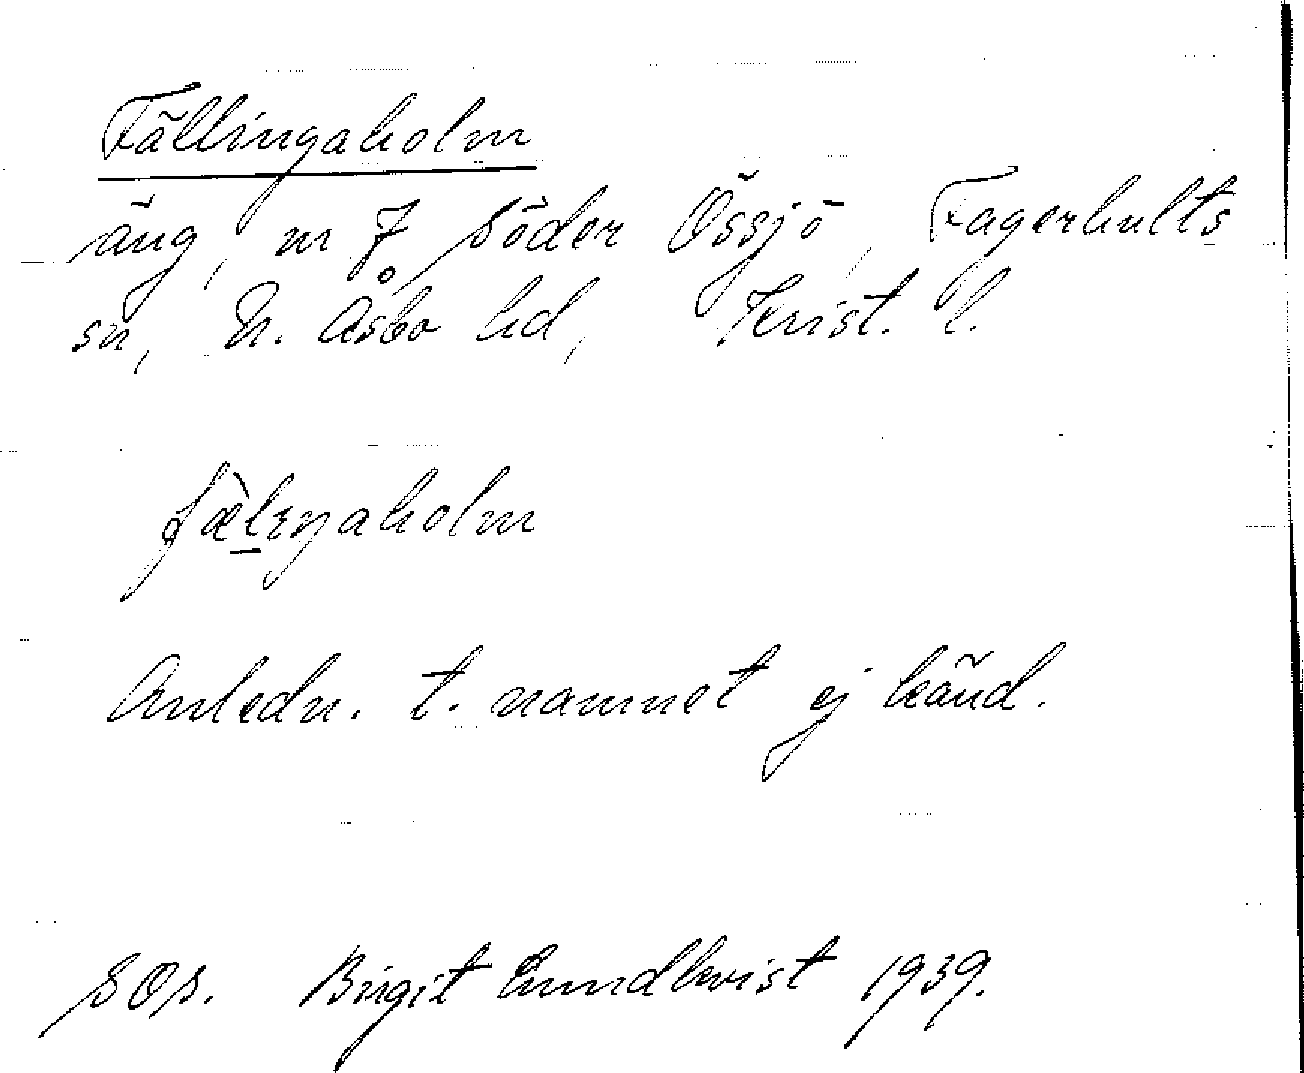 Fällingaholm
äng, nr 7 Söder Össjö, Fagerhults
sn, N. Åsbo hd, Krist. l.
fæ̀lıŋaholm
Anledn. t. namnet ej känd.
SOS. Birgit Lundkvist 1939.